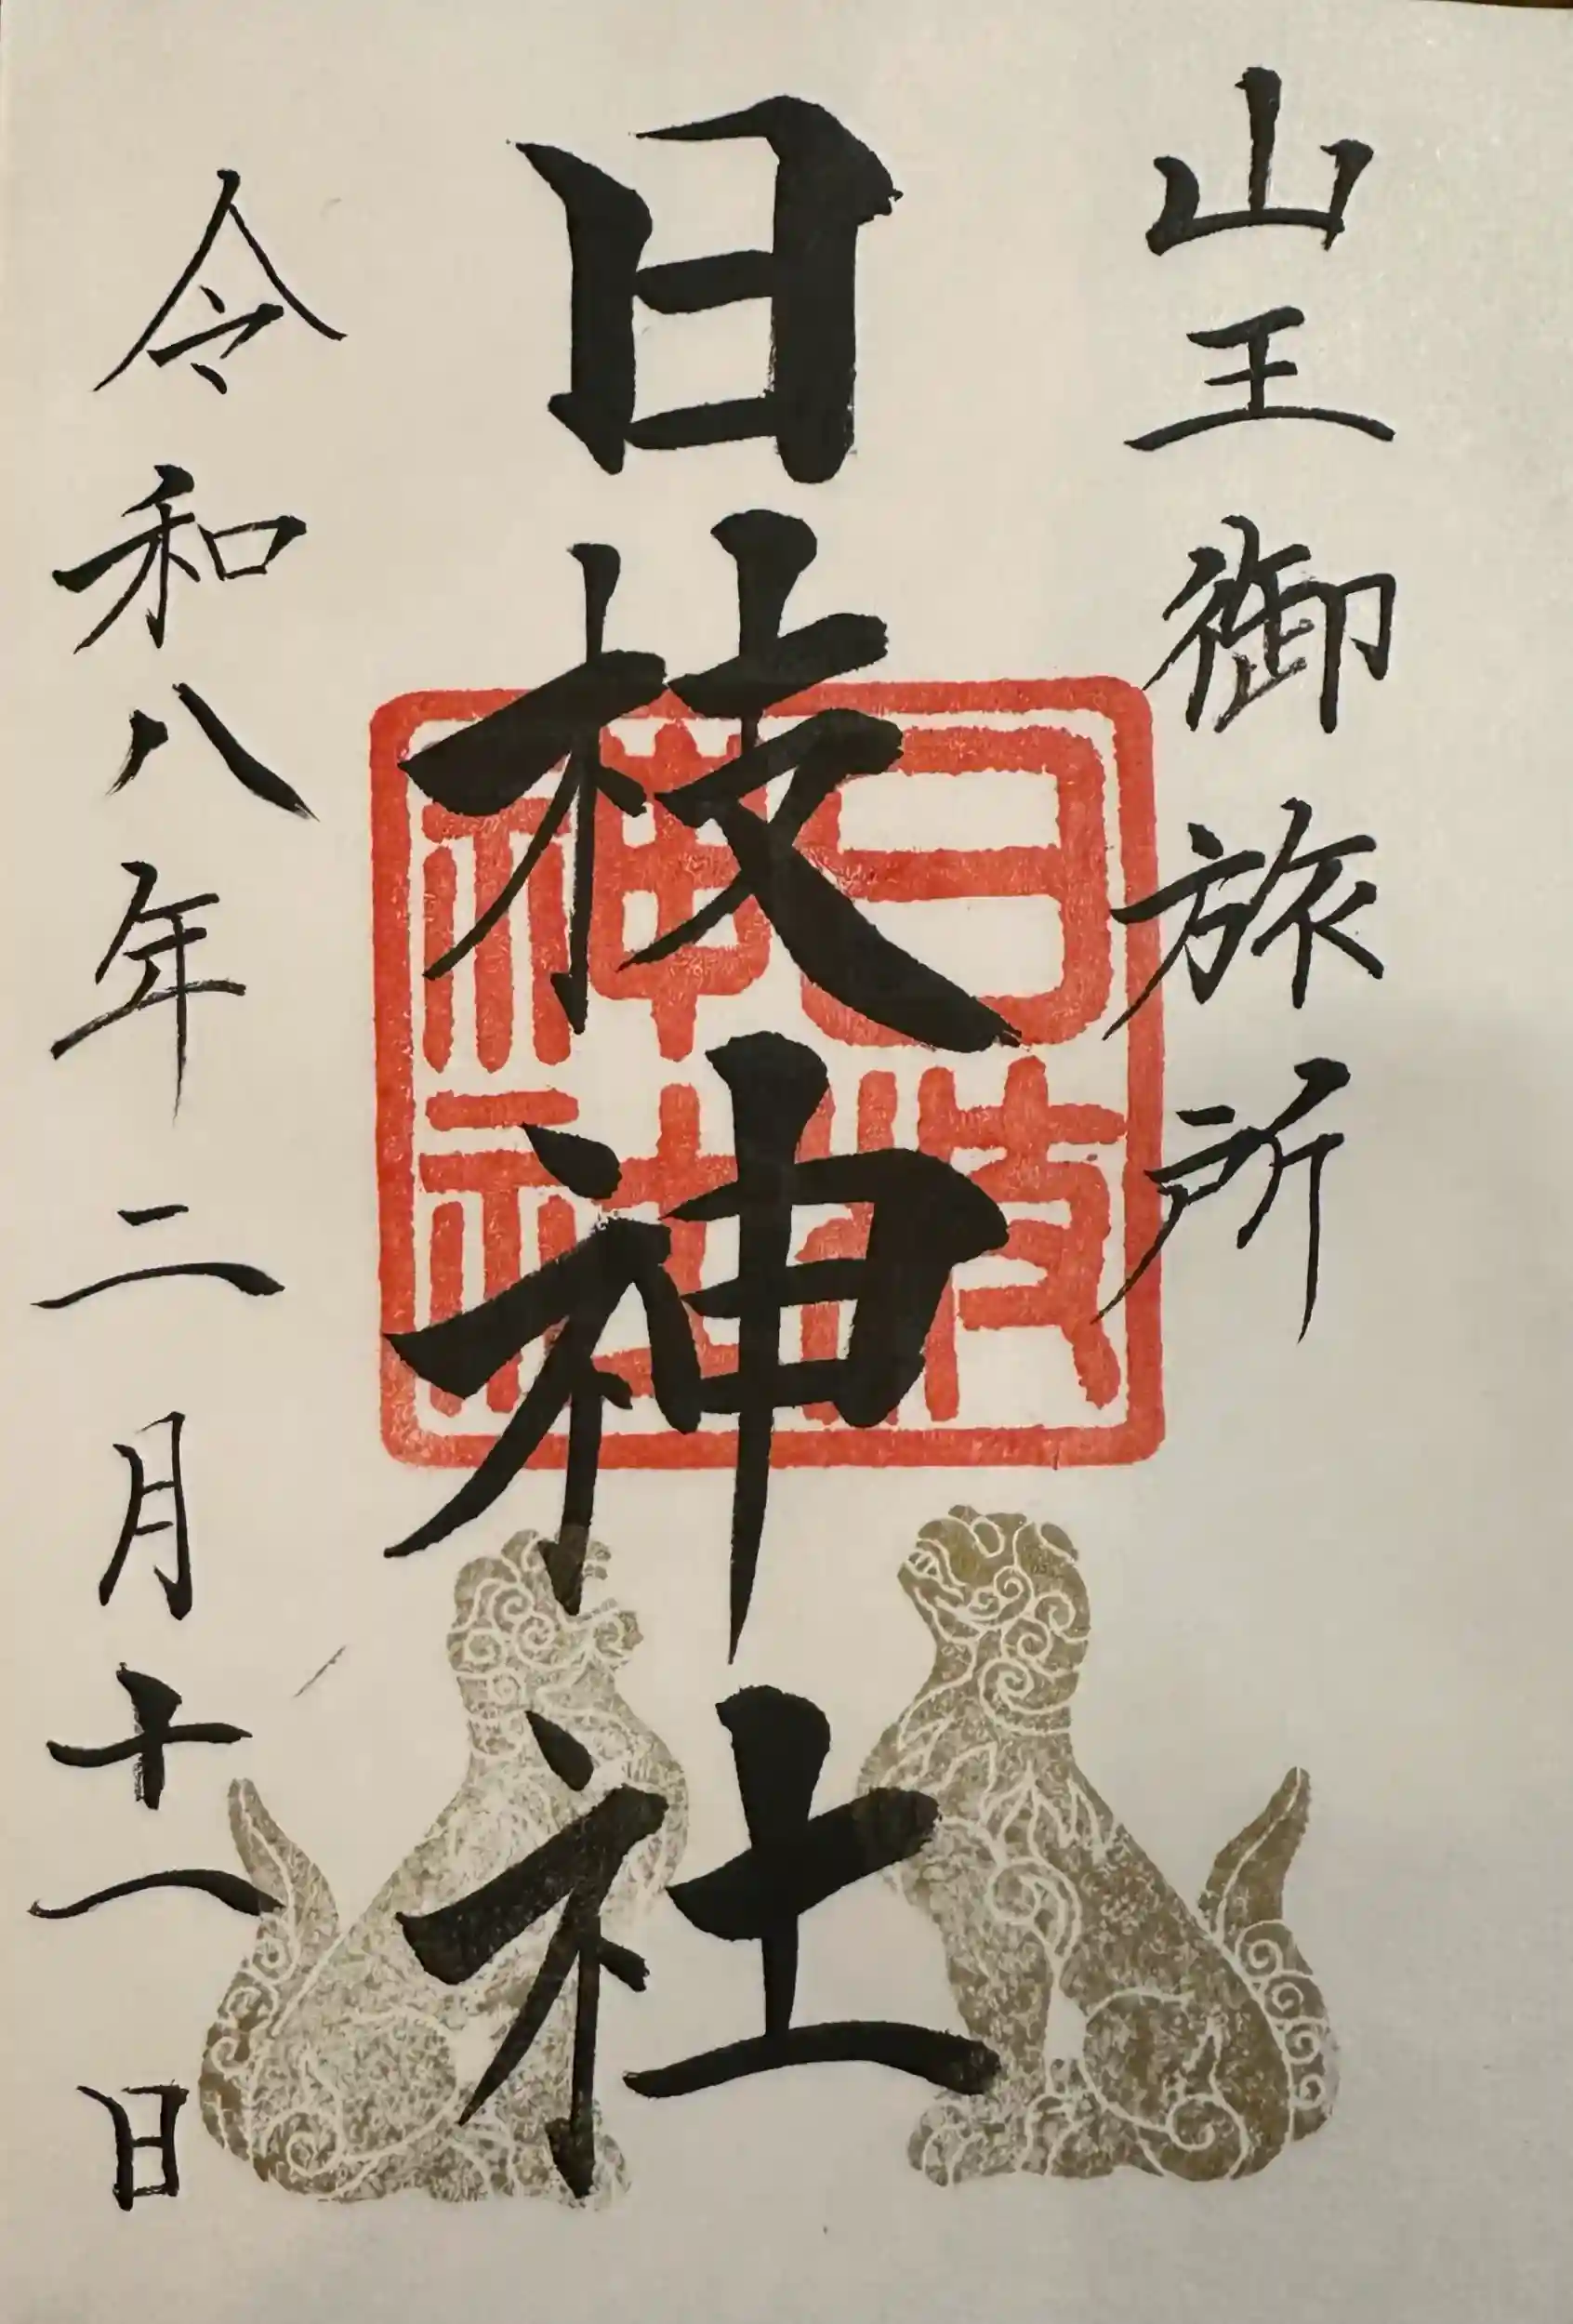 山王御旅所
日枝神社
日枝神社
令和八年二月十一日